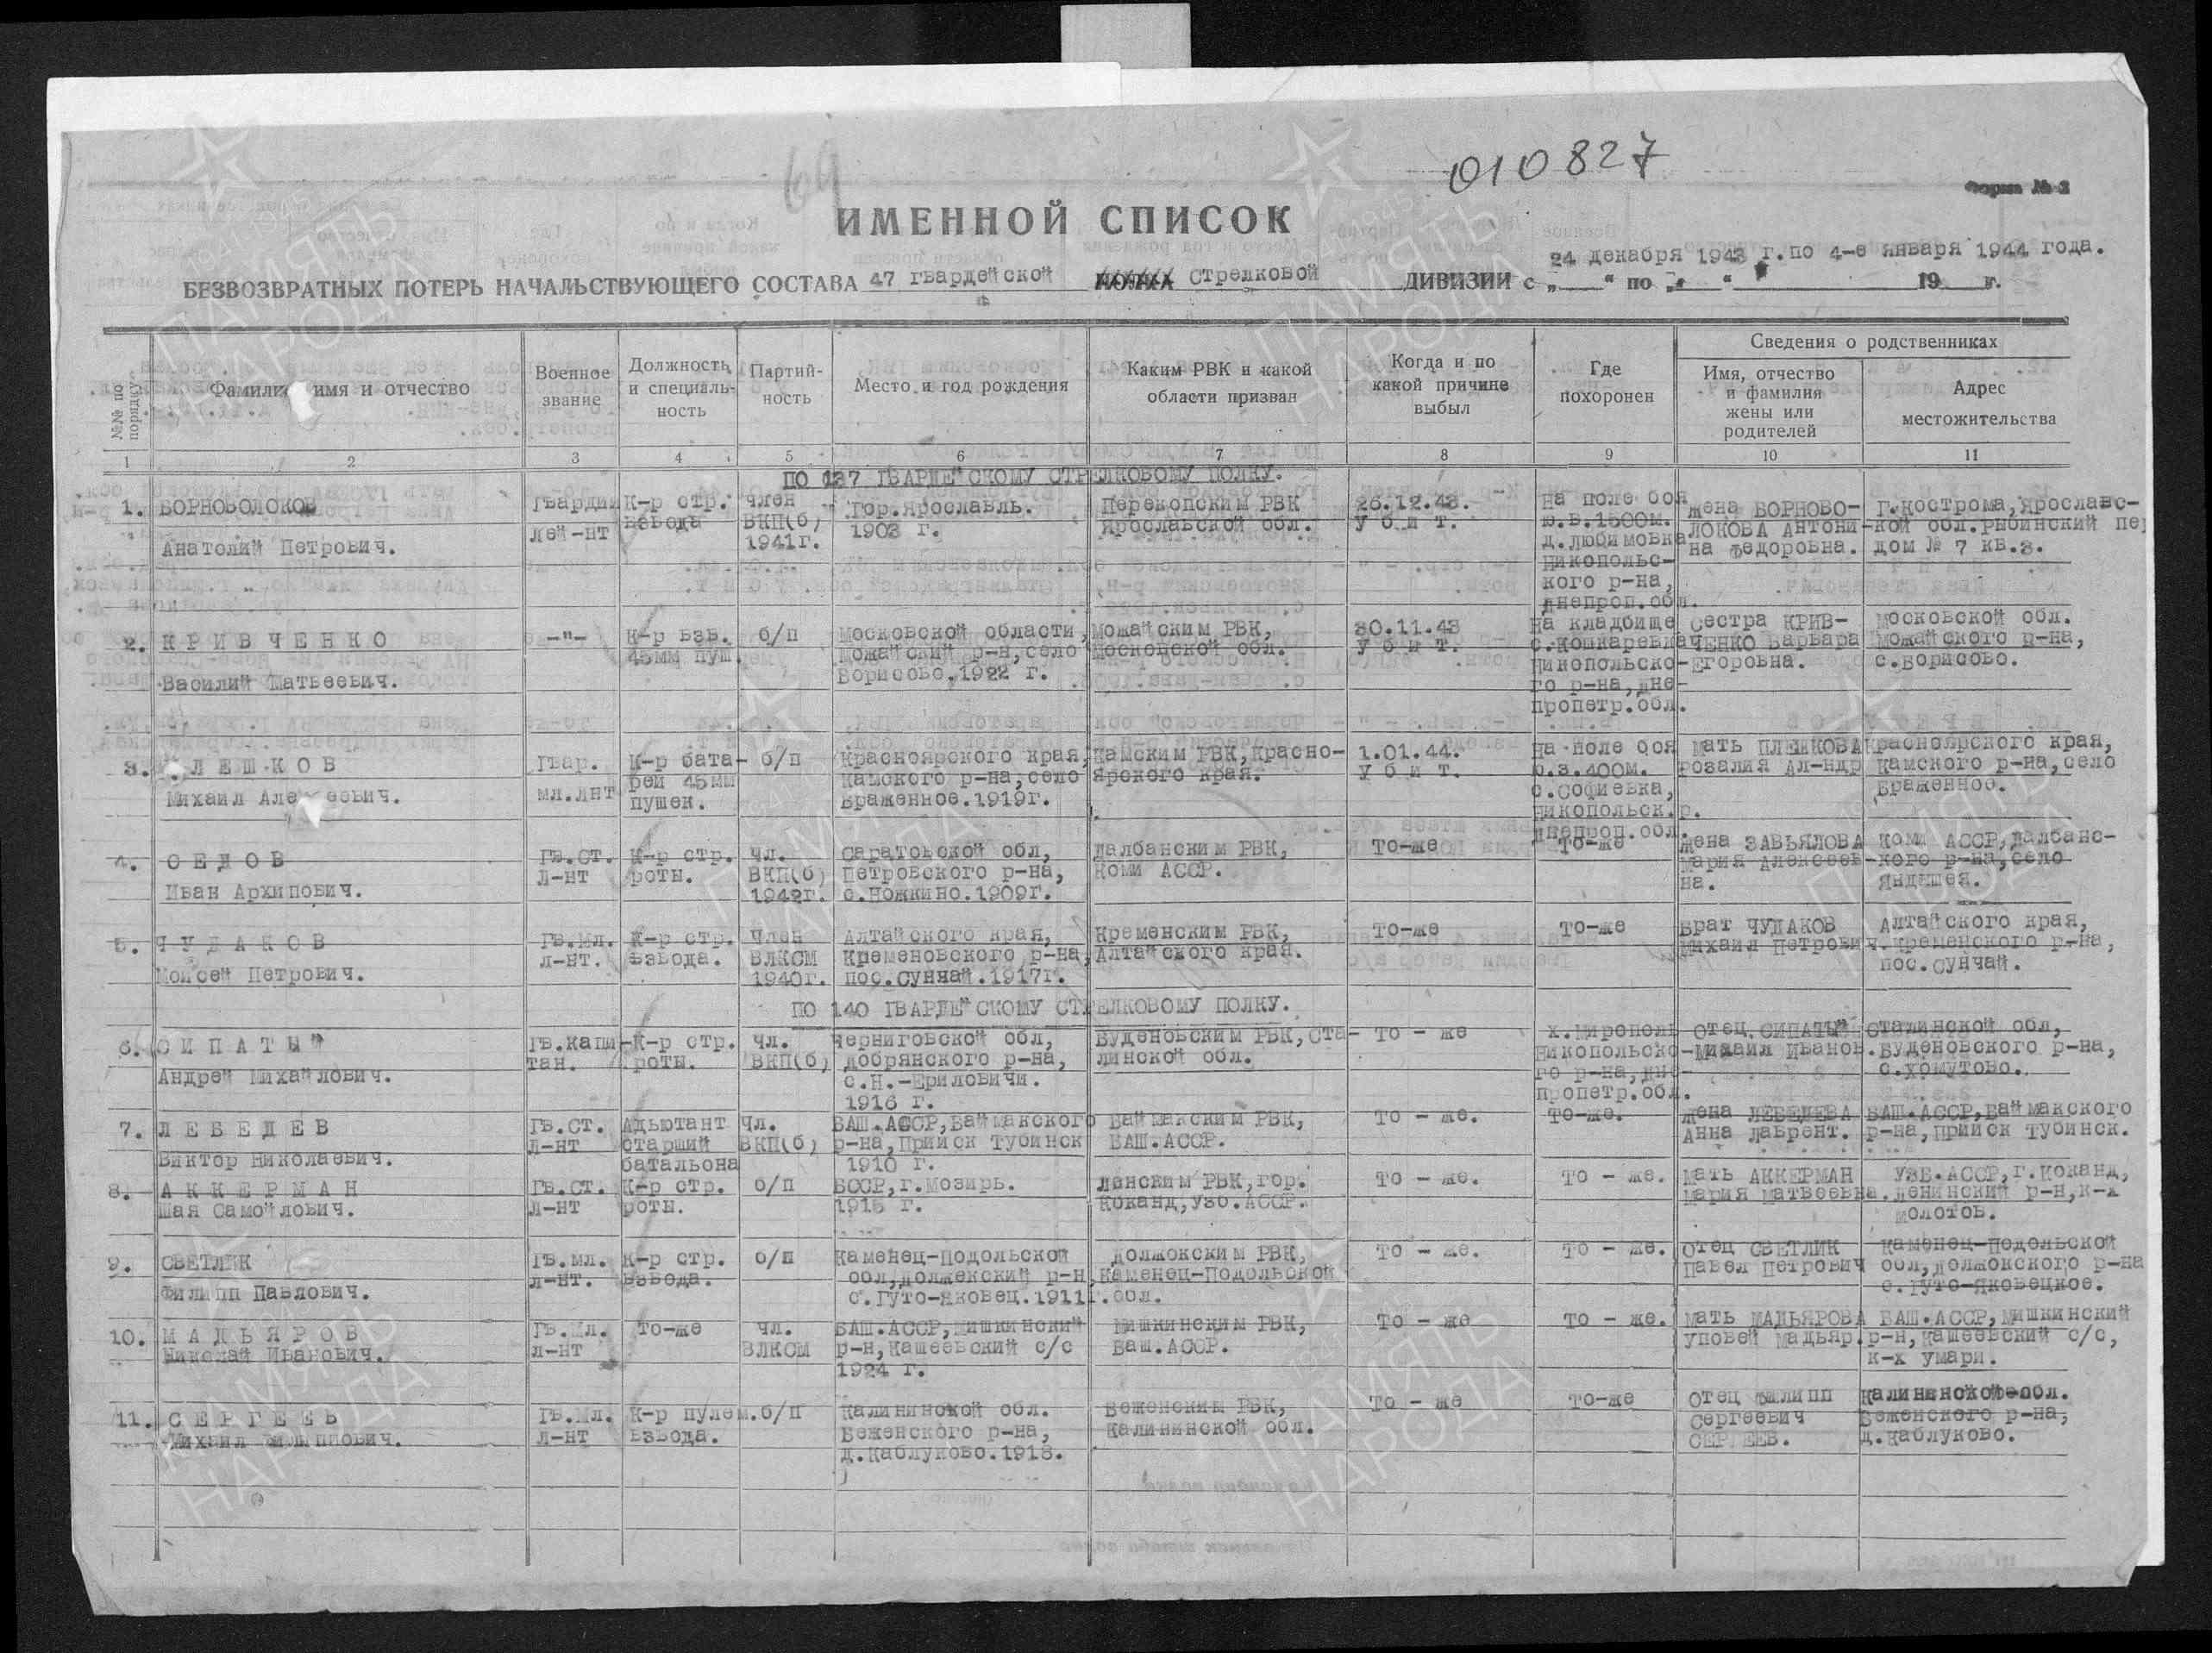 010827
Форма № 2
ИМЕННОЙ СПИСОК
24 декабря 1943 г. по 4-е января 1944 года.
БЕЗВОЗВРАТНЫХ ПОТЕРЬ НАЧАЛЬСТВУЮЩЕГО СОСТАВА 47 гвардейской стрелковой ДИВИЗИИ с „ “ по „ “ 19 г.
№№ по порядку
Фамилия имя и отчество
Военное звание
Должность и специальность
Партийность
Место и год рождения
Каким РВК и какой области призван
Когда и по какой причине выбыл
Где похоронен
Сведения о родственниках
Имя, отчество и фамилия жены или родителей
Адрес местожительства
1 2 3 4 5 6 7 8 9 10 11
ПО 137 ГВАРДЕЙСКОМУ СТРЕЛКОВОМУ ПОЛКУ.
1. БОРНОВОЛОКОВ Гвардии К-р стр. член Гор.Ярославль. Перекопским РВК 26.12.43. На поле боя Жена БОРНОВО- Г.Кострома,Ярославс-
лей-нт взвода ВКП(б) 1903 г. Ярославской обл. у б и т. ю.в.1500м. ЛОКОВА Антони- кой обл.Рыбинский пе
Анатолий Петрович. 1941г. д.Любимовка на Федоровна. дом № 7 кв.3.
Никопольс-
кого р-на,
Днепроп.обл.
2. К Р И В Ч Е Н К О -"- К-р взв. б/п Московской области, Можайским РВК, 30.11.43 На кладбище Сестра КРИВ- Московской обл.
45мм пуш. Можайский р-н,село Московской обл. у б и т. с.Кошкаревка ЧЕНКО Варвара Можайского р-на,
Василий Матвеевич. Борисово.1922 г. Никопольско- Егоровна. с.Борисово.
го р-на,Дне-
пропетр.обл.
3. ЛЕШКОВ Гвар. К-р бата- б/п Красноярского края, Камским РВК,Красно- 1.01.44. На поле боя Мать ПЛЕШКОВА Красноярского края,
мл.лнт реи 45мм Камского р-на,село ярского края. у б и т. ю.з.400м. Розалия Ал-ндр Камского р-на,село
Михаил Алексеевич. пушек. Враженное.1919г. с.Софиевка, Враженное.
Никопольск.р.
Днепроп.обл.
4. С Е Д О В Гв.ст. К-р стр. чл. Саратовской обл, Далбанским РВК, То-же То-же Жена ЗАВЬЯЛОВА Коми АССР,Далбанс-
л-нт роты. ВКП(б) Петровского р-на, Коми АССР. Мария Алексеев- кого р-на,село
Иван Архипович. 1942г. с.Ножкино.1909г. на. Яндышея.
5. Ч У Д А К О В Гв.мл. К-р стр. Член Алтайского края, Кременским РВК, То-же То-же Брат ЧУДАКОВ Алтайского края,
л-нт. взвода. ВЛКСМ Кременовского р-на, Алтайского края. Михаил Петрович. Кременского р-на,
Моисей Петрович. 1940г. пос.Сунчай.1917г. пос.Сунчай.
ПО 140 ГВАРДЕЙСКОМУ СТРЕЛКОВОМУ ПОЛКУ.
6. С И П А Т Ы Й Гв.капи- К-р стр. чл. Черниговской обл, Буденовским РВК,Ста- То - же х.Мирополь Отец СИПАТЫЙ Сталинской обл,
тан. роты. ВКП(б) Добрянского р-на, линской обл. Никопольско- Михаил Иванов. Буденовского р-на,
Андрей Михайлович. с.Н.-Ериловичи. го р-на,Дне- с.Хомутово.
1916 г. пропетр.обл.
7. Л Е Б Е Д Е В Гв.ст. Адьютант чл. БАШ.АССР,Баймакского Баймакским РВК, То - же. То-же. Жена ЛЕБЕДЕВА БАШ.АССР,Баймакского
л-нт старший ВКП(б) р-на,Прииск Тубинск БАШ.АССР. Анна Лаврент. р-на,Прииск Тубинск.
Виктор Николаевич. батальона 1910 г.
8. А К К Е Р М А Н Гв.ст. К-р стр. б/п БССР,г.Мозирь. Ленским РВК,гор. То - же. То - же. Мать АККЕРМАН УЗБ.АССР,г.Коканд,
Шая Самойлович. л-нт роты. 1915 г. Коканд,Узб.АССР. Мария Матвеевна. Ленинский р-н,к-х
Молотов.
9. СВЕТЛИК Гв.мл. К-р стр. б/п Каменец-Подольской Должокским РВК, То - же. То - же. Отец СВЕТЛИК Каменец-Подольской
л-нт. взвода. обл,Должекский р-н, Каменец-Подольской Павел Петрович обл,Должокского р-на
Филипп Павлович. с.Гуто-Яковец.1911г. обл. с.Гуто-Яковецкое.
10. М А Д Ь Я Р О В Гв.мл. То-же чл. БАШ.АССР,Мишкинский Мишкинским РВК, То - же То - же. Мать МАДЬЯРОВА БАШ.АССР,Мишкинский
Николай Иванович. л-нт ВЛКСМ р-н,Кашеевский с/с Баш.АССР. Уповей Мадьяр. р-н,Кашеевский с/с,
1924 г. к-х Умаря.
11. С Е Р Г Е Е В Гв.мл. К-р пулем. б/п Калининской обл. Беженским РВК, То - же То-же Отец Филипп Калининской обл.
Михаил Филиппович. л-нт взвода. Беженского р-на, Калининской обл. Сергеевич Беженского р-на,
д.Каблуково.1918. СЕРГЕЕВ. д.Каблуково.
ПАМЯТЬ НАРОДА